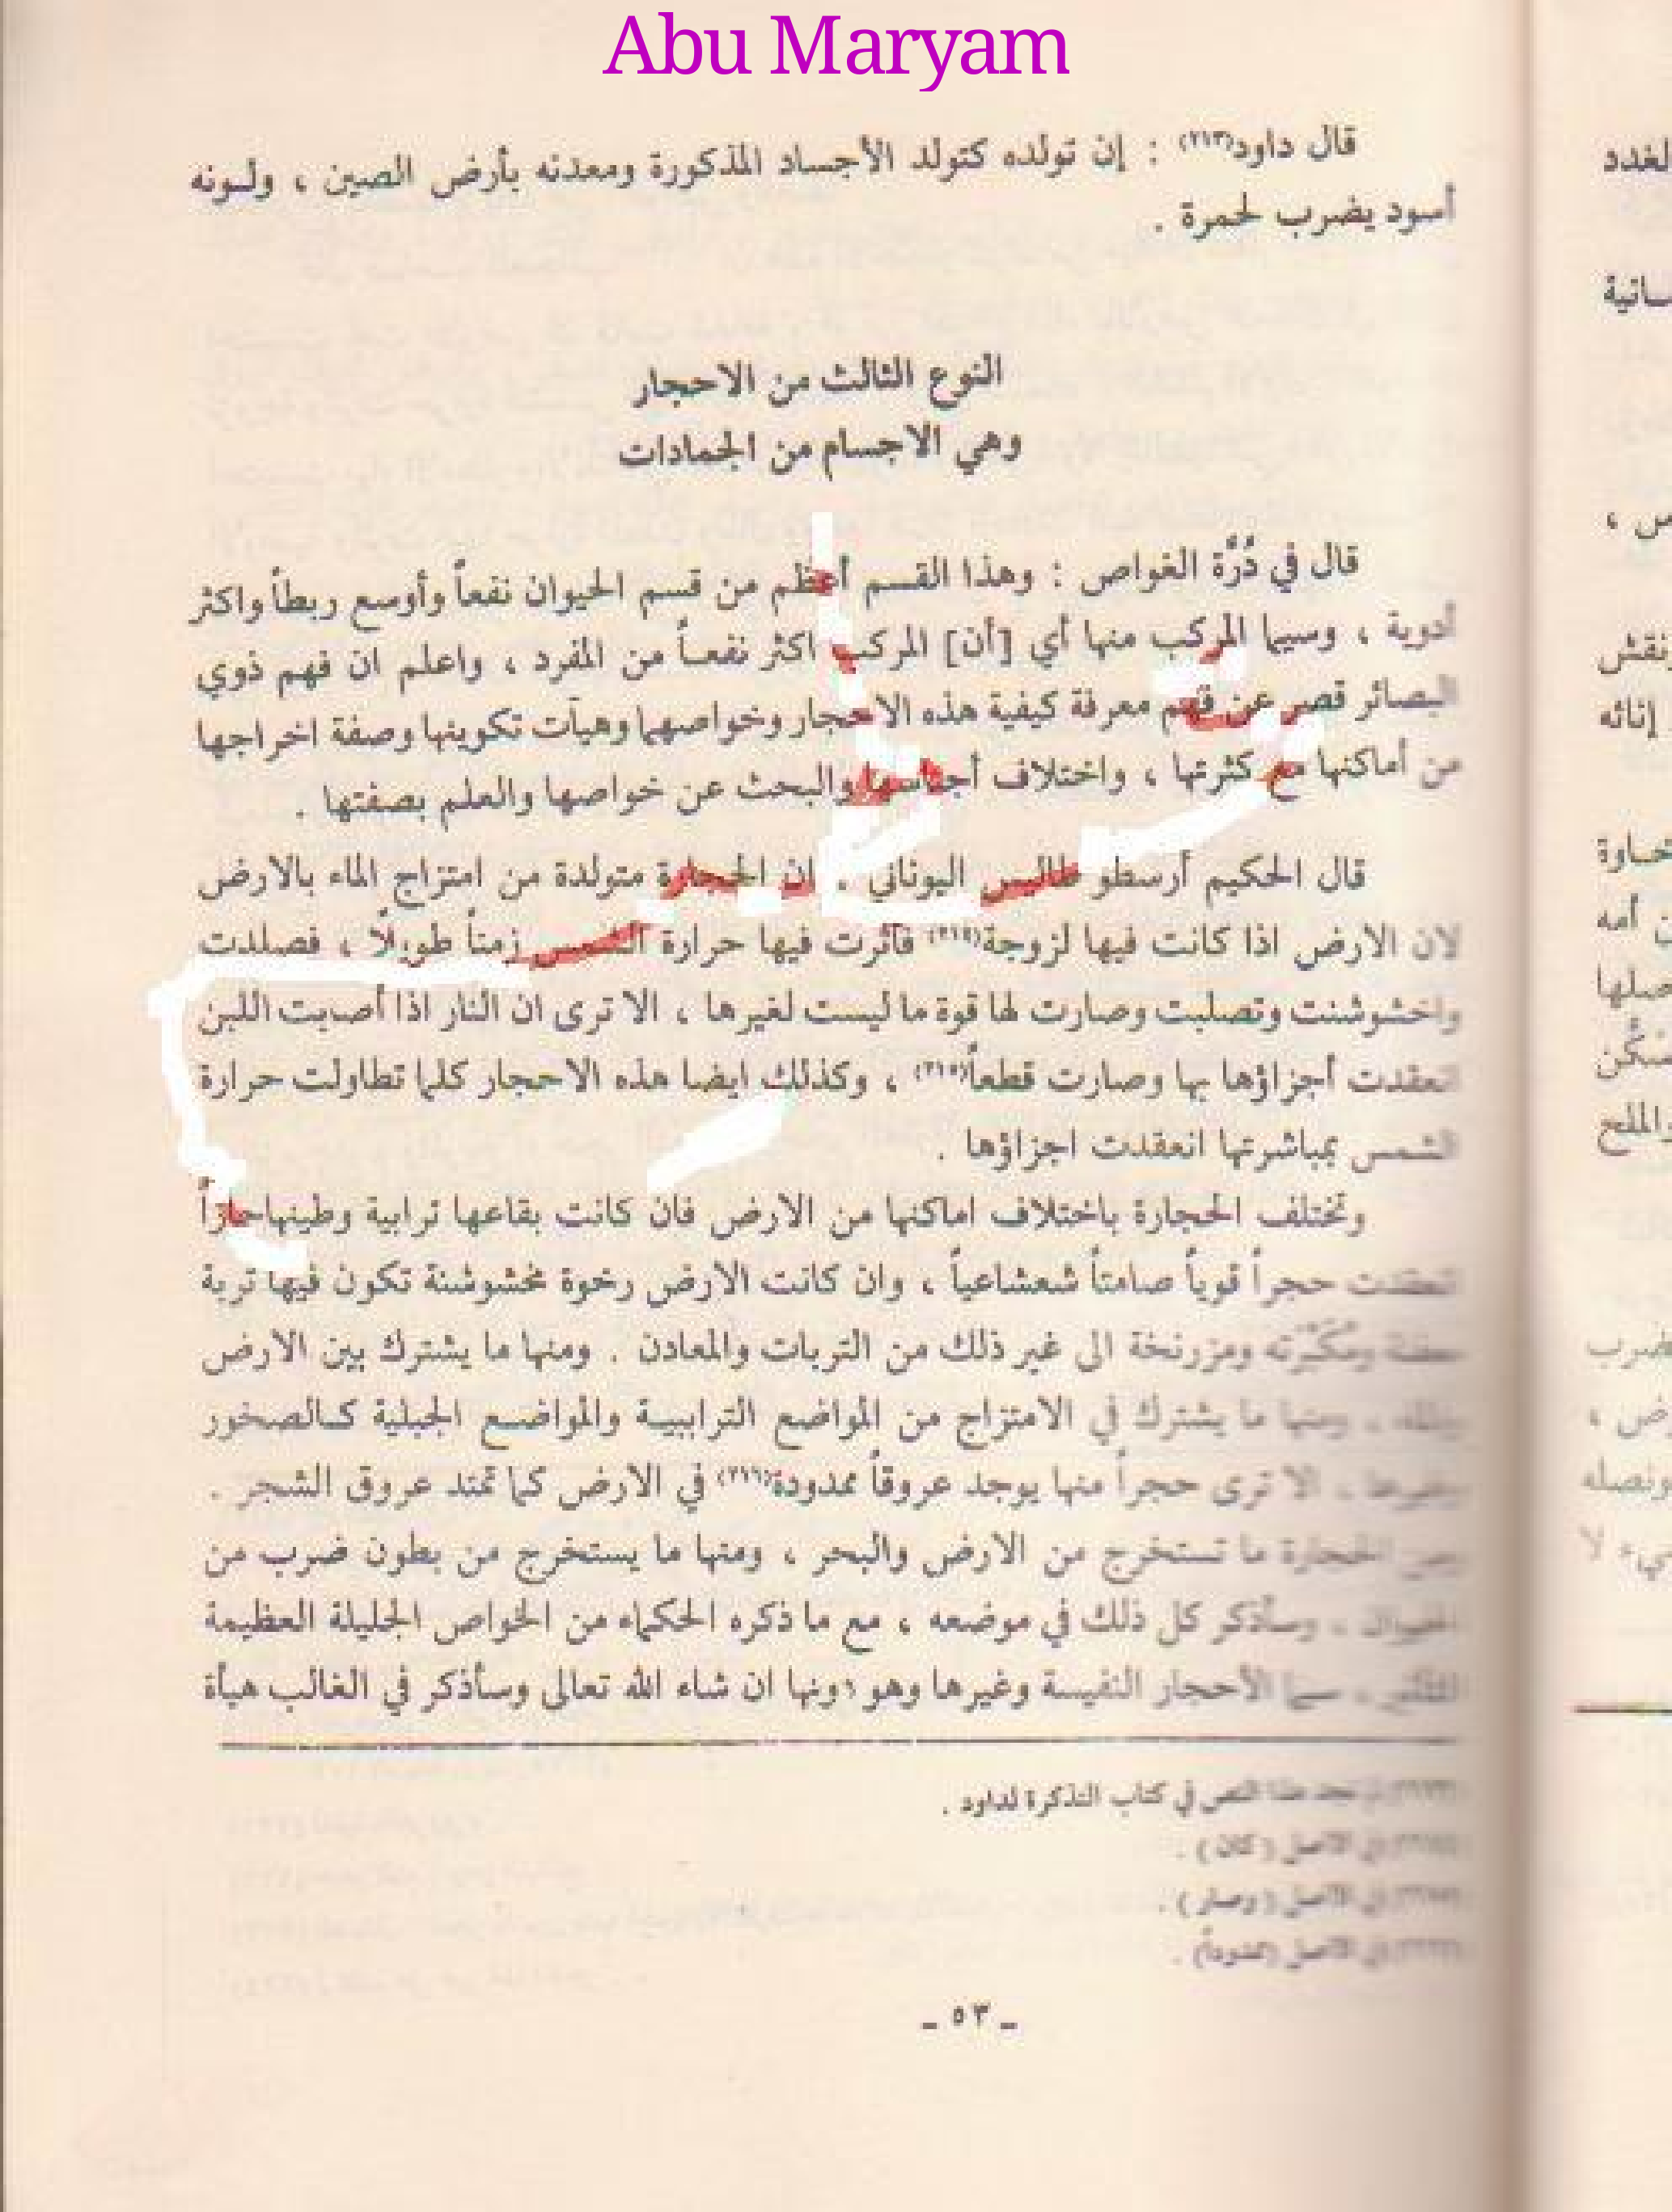 Abu Maryam
قال داود(٢١٣) : إن تولده كتولد الأجساد المذكورة ومعدنه بأرض الصين ، ولونه
أسود يضرب لحمرة .
النوع الثالث من الاحجار
وهي الاجسام من الجمادات
قال في دُرَّة الغواص : وهذا القسم أعظم من قسم الحيوان نفعاً وأوسع ربطاً واكثر
أدوية ، وسيما المركب منها أي [أن] المركب اكثر نفعاً من المفرد ، واعلم ان فهم ذوي
البصائر قصر عن فهم معرفة كيفية هذه الاحجار وخواصهما وهيآت تكوينها وصفة اخراجها
من أماكنها مع كثرتها ، واختلاف أجناسها والبحث عن خواصها والعلم بصفتها .
قال الحكيم أرسطو طاليس اليوناني . ان الحجارة متولدة من امتزاج الماء بالارض
لان الارض اذا كانت فيها لزوجة(٢١٤) فأثرت فيها حرارة الشمس زمناً طويلاً ، فصلدت
واخشوشنت وتصلبت وصارت لها قوة ما ليست لغيرها ، الا ترى ان النار اذا أصيبت اللبن
انعقدت أجزاؤها بها وصارت قطعاً(٢١٥) ، وكذلك ايضا هذه الاحجار كلما تطاولت حرارة
الشمس بمباشرتها انعقدت اجزاؤها .
وتختلف الحجارة باختلاف اماكنها من الارض فان كانت بقاعها ترابية وطينها حاراً
انعقدت حجراً قوياً صامتاً شعشاعياً ، وان كانت الارض رخوة مخشوشنة تكون فيها تربة
ومزرنخة الى غير ذلك من التربات والمعادن . ومنها ما يشترك بين الارض
ومنها ما يشترك في الامتزاج من المواضع الترابيية والمواضع الجبلية كالصخور
وغيرها . الا ترى حجراً منها يوجد عروقاً ممدودة(٢١٦) في الارض كما تمتد عروق الشجر .
ومن الحجارة ما تستخرج من الارض والبحر ، ومنها ما يستخرج من بطون ضرب من
الحيوان ، وسأذكر كل ذلك في موضعه ، مع ما ذكره الحكماء من الخواص الجليلة العظيمة
سيما الأحجار النفيسة وغيرها وهو دونها ان شاء الله تعالى وسأذكر في الغالب هيأة
(٢١٣) لم نجد هذا النص في كتاب التذكرة لداود .
(٢١٤) في الاصل ( كان ) .
(٢١٥) في الاصل ( وصار ) .
(٢١٦) في الاصل (ممدوداً) .
ـ ٥٣ ـ
الغدد
سانية
ونقش
إنائه
ن أمه
والملح
ونصله